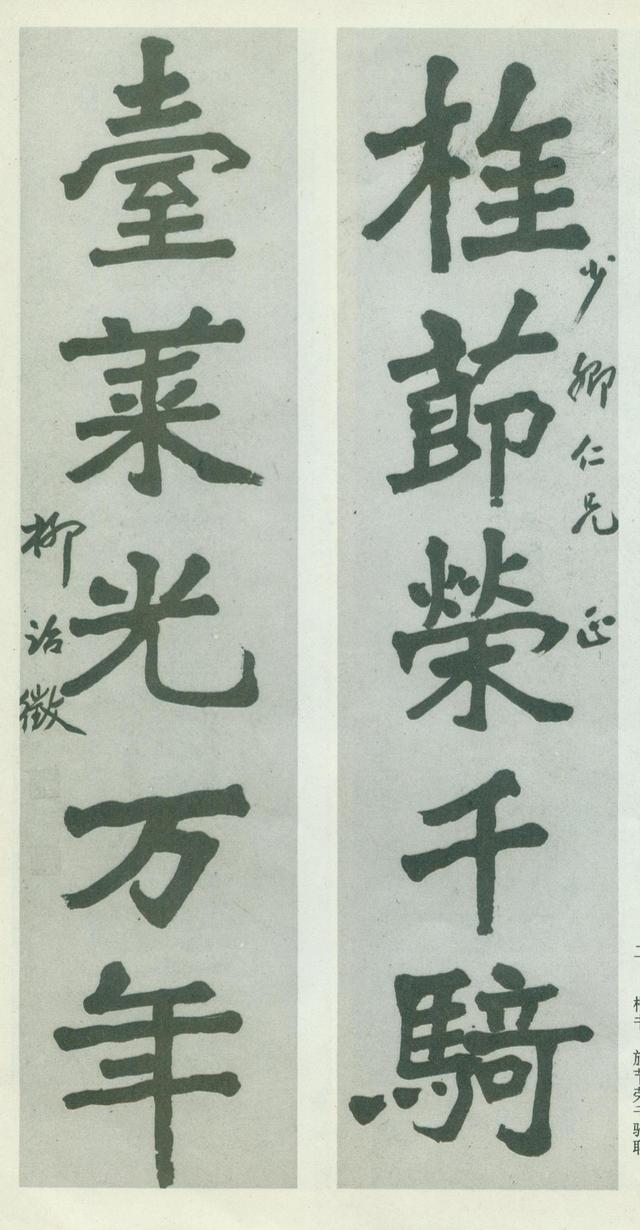 旌節榮千騎
少卿仁兄 正
臺萊光万年
柳詒徵